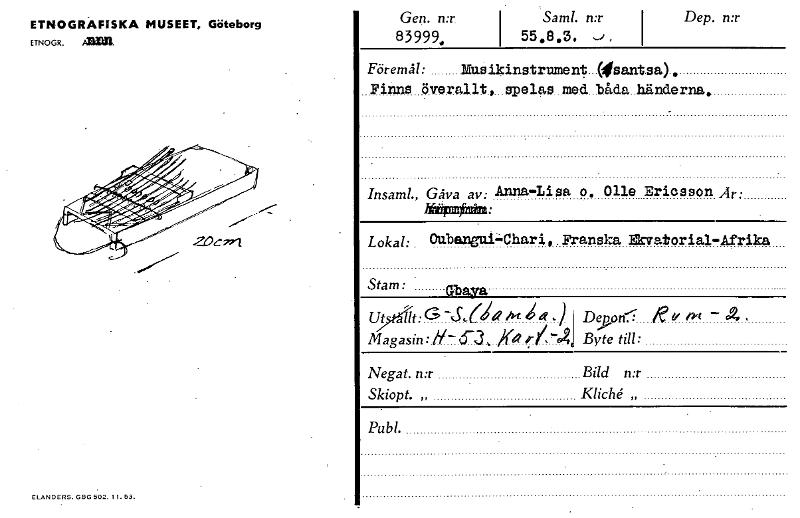 ETNOGRAFISKA MUSEET, Göteborg
ETNOGR.
20cm
ELANDERS. GBG 502. 11. 53.
Gen. n:r Saml. n:r Dep. n:r
83999. 55.8.3.
Föremål: Musikinstrument (santsa).
Finns överallt, spelas med båda händerna.
Insaml., Gåva av: Anna-Lisa o. Olle Ericsson År:
Lokal: Oubangui-Chari, Franska Ekvatorial-Afrika
Stam: Gbaya
Utställt: G-S. (bamba.) Depon.: Rum-2.
Magasin: H-53. Kart.-2. Byte till:
Negat. n:r Bild n:r
Skiopt. „ Kliché „
Publ.